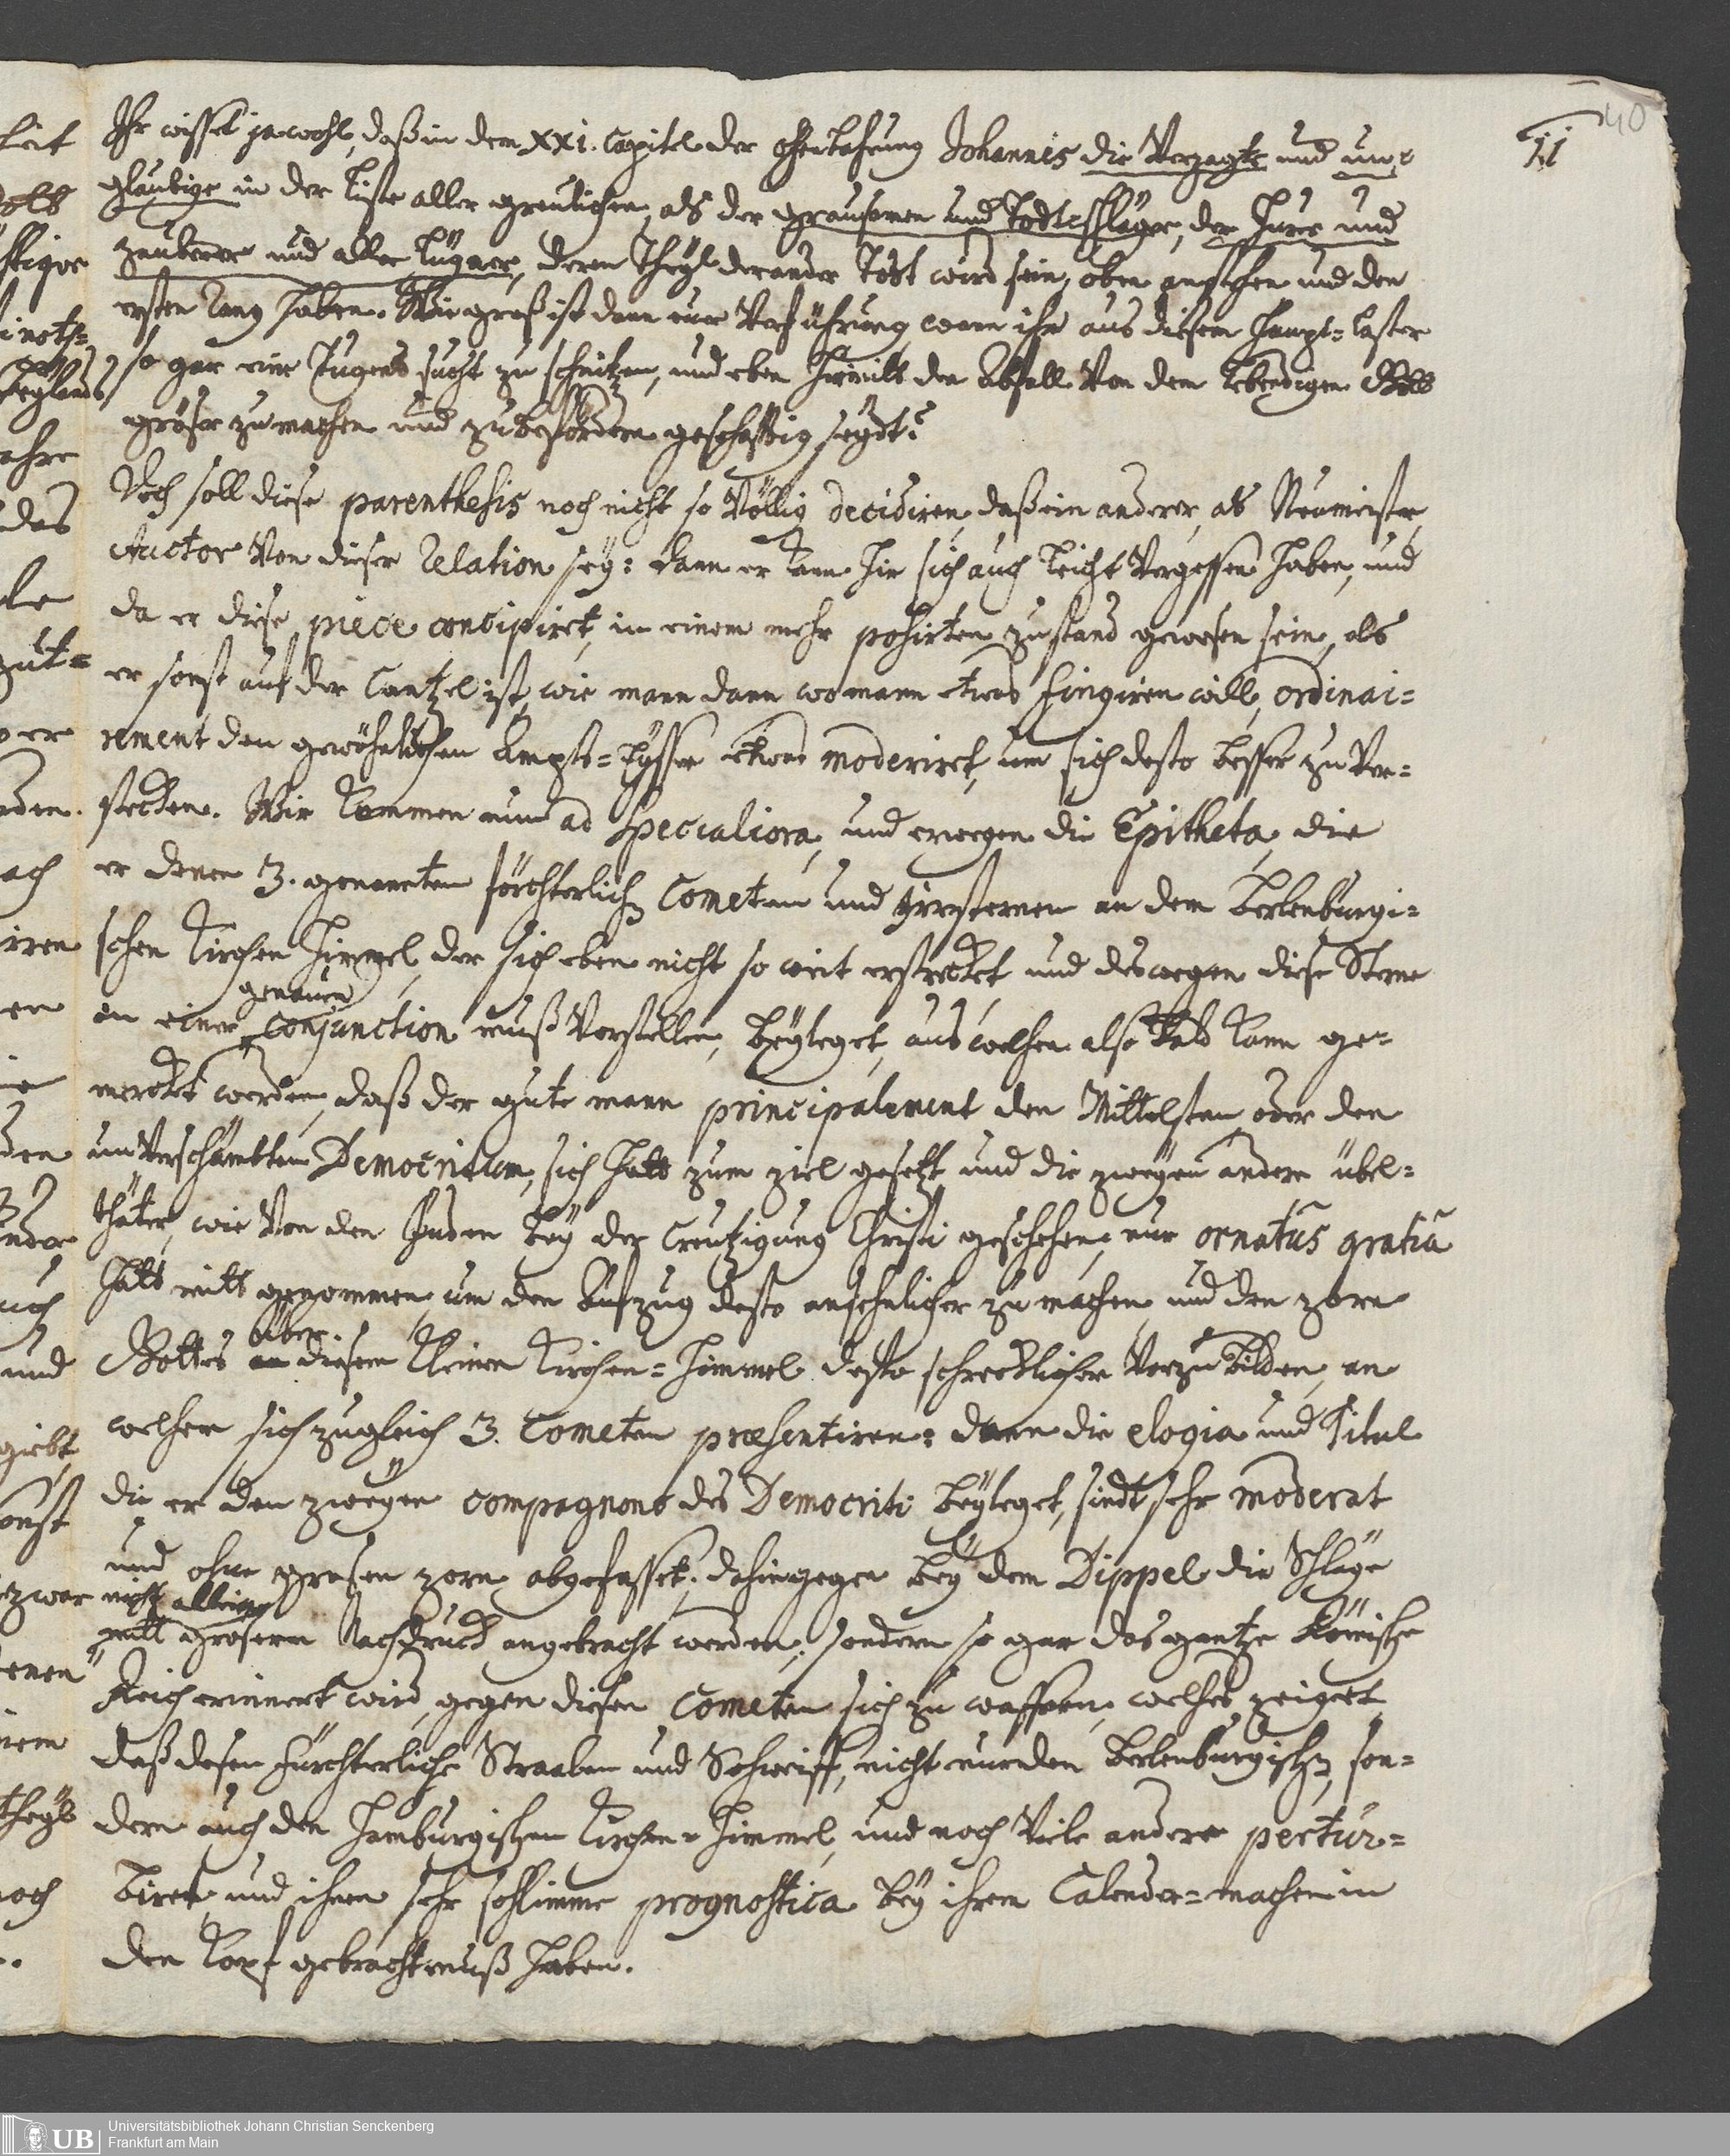 40
11
Ihr wisset ja wohl, daß in dem XXI. Capitel der Offenbahrung Johannis die Verzagte und un=
gläubige in der Liste aller greulichen, als der grausamen und Todtschläger, der Hurer und
zauberer und aller Lügner, deren Theyl der ander Todt wird sein, oben anstehen und den
ersten Rang haben. Wie groß ist dann eure Verführung, wann ihr aus diesem Haupt=Laster
so gar eine Tugend sucht zu schnitzen, und eben hiemitt den Abfall Von dem Lebendigen Gott
gröser zu machen und zu befördern geschäfftig seydt?
Doch soll diese parenthesis noch nicht so Völlig decidiren, daß ein anderer, als Neumeister,
Auctor Von dieser Relation sey: dann er kann hie sich auch leicht Vergessen haben, und
da er diese piece concipiret, in einem mehr posirten zustand gewesen sein, als
er sonst auf der Cantzel ist, wie mann dann wo mann etwas fingiren will, ordinai=
rement den gewöhnlichen Ampts=Eyffer etwas moderiret, um sich desto besser zu Ver=
stecken. Wir kommen nun ad Specialiora, und erwegen die Epitheta, die
er denen 3. genannten förchterlichen Cometen und Irrsternen an dem Berlenburgi=
schen Kirchen Himmel, der sich eben nicht so weit erstrecket und deswegen diese Sterne
genauen
in einer conjunction muß Vorstellen, beyleget, aus welchen also bald kann ge=
mercket werden, daß der gute mann principalement den Mittelsten oder den
unverschämbten Democritum, sich hatt zum ziel gesetzt und die zweyen andere übel=
thäter, wie Von den Juden bey der Creutzigung Christi geschehen, nur ornatûs gratiâ
hatt mitt genommen, um den Aufzug desto ansehnlicher zu machen, und den zorn
über
Gottes an diesem kleinen Kirchen=Himmel desto schrecklicher Vorzubilden, an
welchen sich zugleich 3. Cometen præsentiren: dann die elogia und Titul
die er den zweyen compagnons des Democriti beyleget, sindt sehr moderat
und ohne grosen zorn abgefasset; dahingegen bey dem Dippel die Schläge
nicht allein
mitt grösern Nachdruck angebracht werden, sondern so gar das gantze Römische
Reich erinnert wird, gegen diesen Cometen sich zu waffnen, welches zeiget
daß desen fürchterliche Straalen und Schweiff, nicht nur den Berlenburgischen, son=
dern auch den Hamburgischen Kirchen=Himmel, und noch Viele andere pertur=
biret, und ihnen sehr schlimme prognostica bey ihrem Calender=machen in
den Kopf gebracht muß haben.
Universitätsbibliothek Johann Christian Senckenberg
Frankfurt am Main
UB